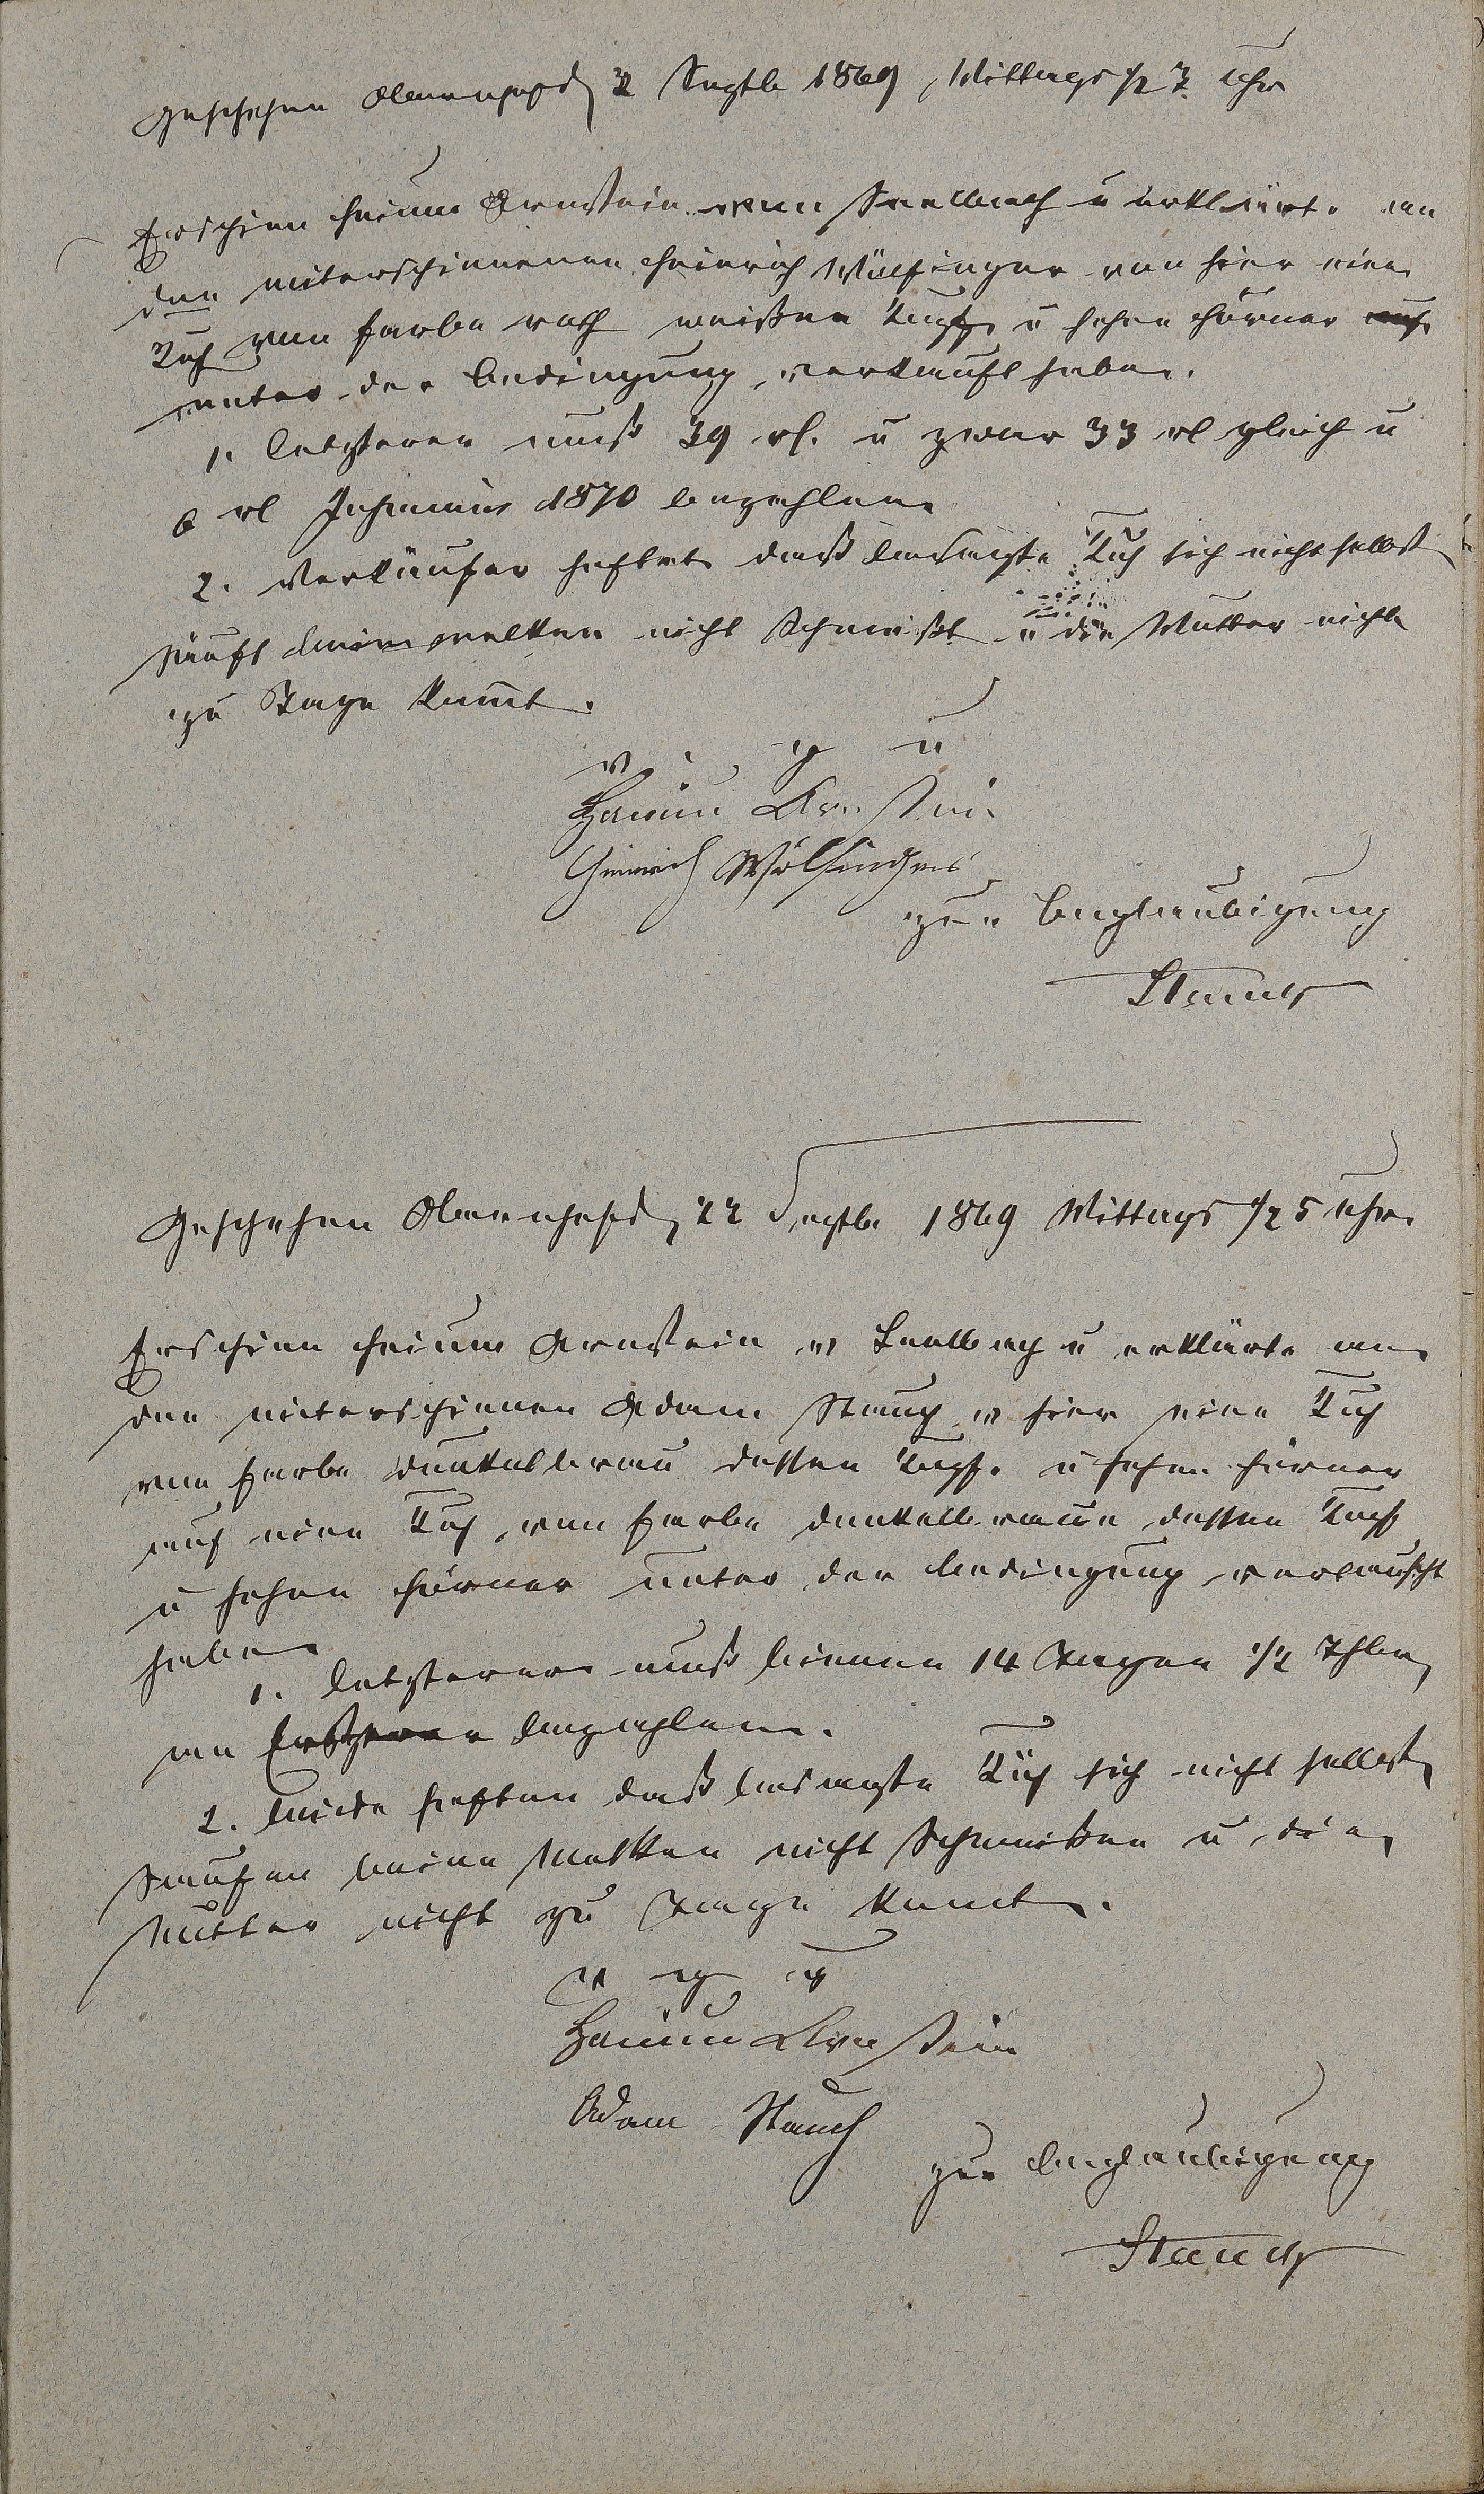 Geschehen Obernhof d 2 Septb 1869, Mittags 1/2 7 Uhr
Erschien Heium Arnstein von Seelbach u erklärte an
den miterschienenen Heinrich Wölfinger von hier eine
Kuh von Farbe roth weißen Kopf u hohen Hörner
unter der Bedingung verkauft haben.
1. Letzterer muß 39 rl. u zwar 33 rl gleich u
6 rl Johannis 1870 bezahlen
2. Verkäufer haftet daß besagte Kuh sich nicht selbst
sauft beim melken nicht Schmeißt u die Mutter nicht
zu Tage kommt.
v g u
Haium Arnstein
Heinrich Wölfinger
zur Beglaubigung
Stauch
Geschehen Obernhof d 22 Septb 1869 Mittags 1/2 5 Uhr
Erschien Heium Arnstein v Seelbach u erklärte an
den miterschienen Adam Stauch v hier eine Kuh
von Farbe dunkelbrau dessen Kopf u hohen Hörner
auf eine Kuh von Farbe dunkelbraun dessen Kopf
u hohen Hörner unter der Bedingung vertauscht
haben
1. Letzterer muß binnen 14 Tagen 1/2 Thlr
an Ersterer bezahlen.
2. Beide haften daß besagte Küh sich nicht selbst
Saufen beim Melken nicht Schmeißen u die
Mutter nicht zu Tage kommt.
v g u
Haium Arnstein
Adam Stauch
zur Beglaubigung
Stauch